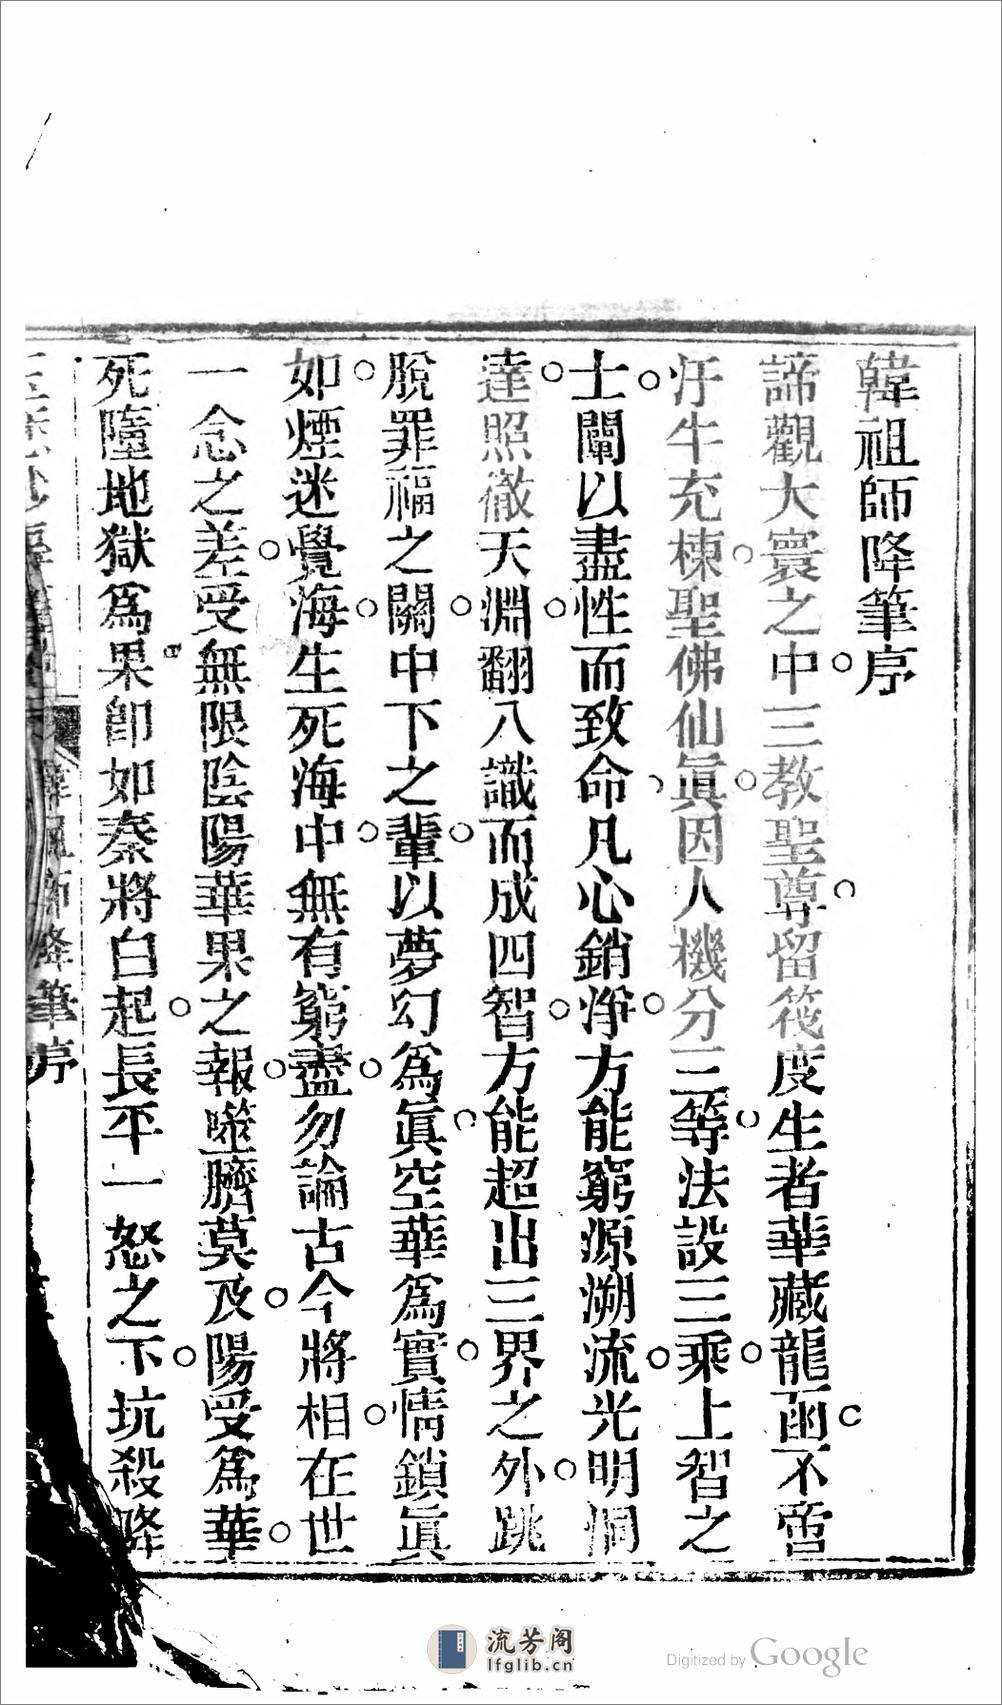 韓祖師降筆序
諦觀大寰之中三教聖尊留筏度生者華藏龍函不啻
汗牛充棟聖佛仙眞因人機分三等法設三乘上智之
士闡以盡性而致命凡心銷淨方能窮源溯流光明洞
達照徹天淵翻八識而成四智方能超出三界之外跳
脫罪福之關中下之輩以夢幻爲眞空華爲實情鎖眞
如煙迷覺海生死海中無有窮盡勿論古今將相在世
一念之差受無限陰陽華果之報噬臍莫及陽受爲華
死墮地獄爲果卽如秦將白起長平一怒之下坑殺降
韓祖師降筆序
流芳阁
lfglib.cn
Digitized by Google